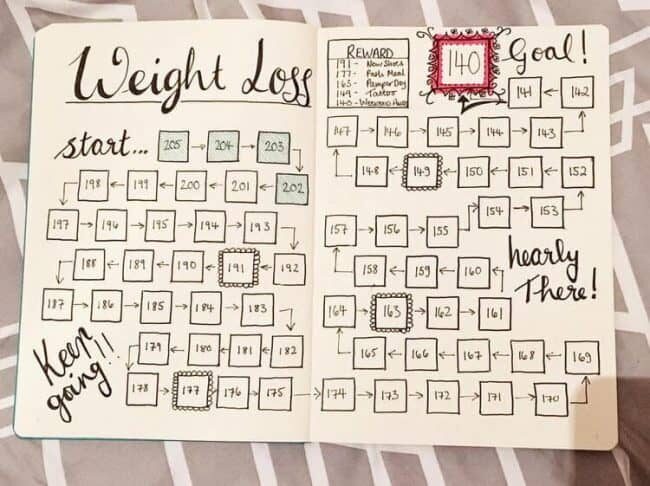 Weight Loss
start...
205 → 204 → 203
198 ← 199 ← 200 ← 201 ← 202
197 → 196 → 195 → 194 → 193
188 ← 189 ← 190 ← 191 ← 192
187 → 186 → 185 → 184 → 183
179 ← 180 ← 181 ← 182
178 → 177 → 176 → 175
Keep
going!!!
REWARD
191 - New Shoes
177 - Meal
163 - Pamper Day
149 - Tattoo
140 - Weekend Away
140
Goal!
141 ← 142
147 → 146 → 145 → 144 → 143
148 ← 149 ← 150 ← 151 ← 152
154 → 153
157 → 156 → 155
158 ← 159 ← 160
nearly
There!
164 → 163 → 162 → 161
165 ← 166 ← 167 ← 168 ← 169
174 → 173 → 172 → 171 → 170